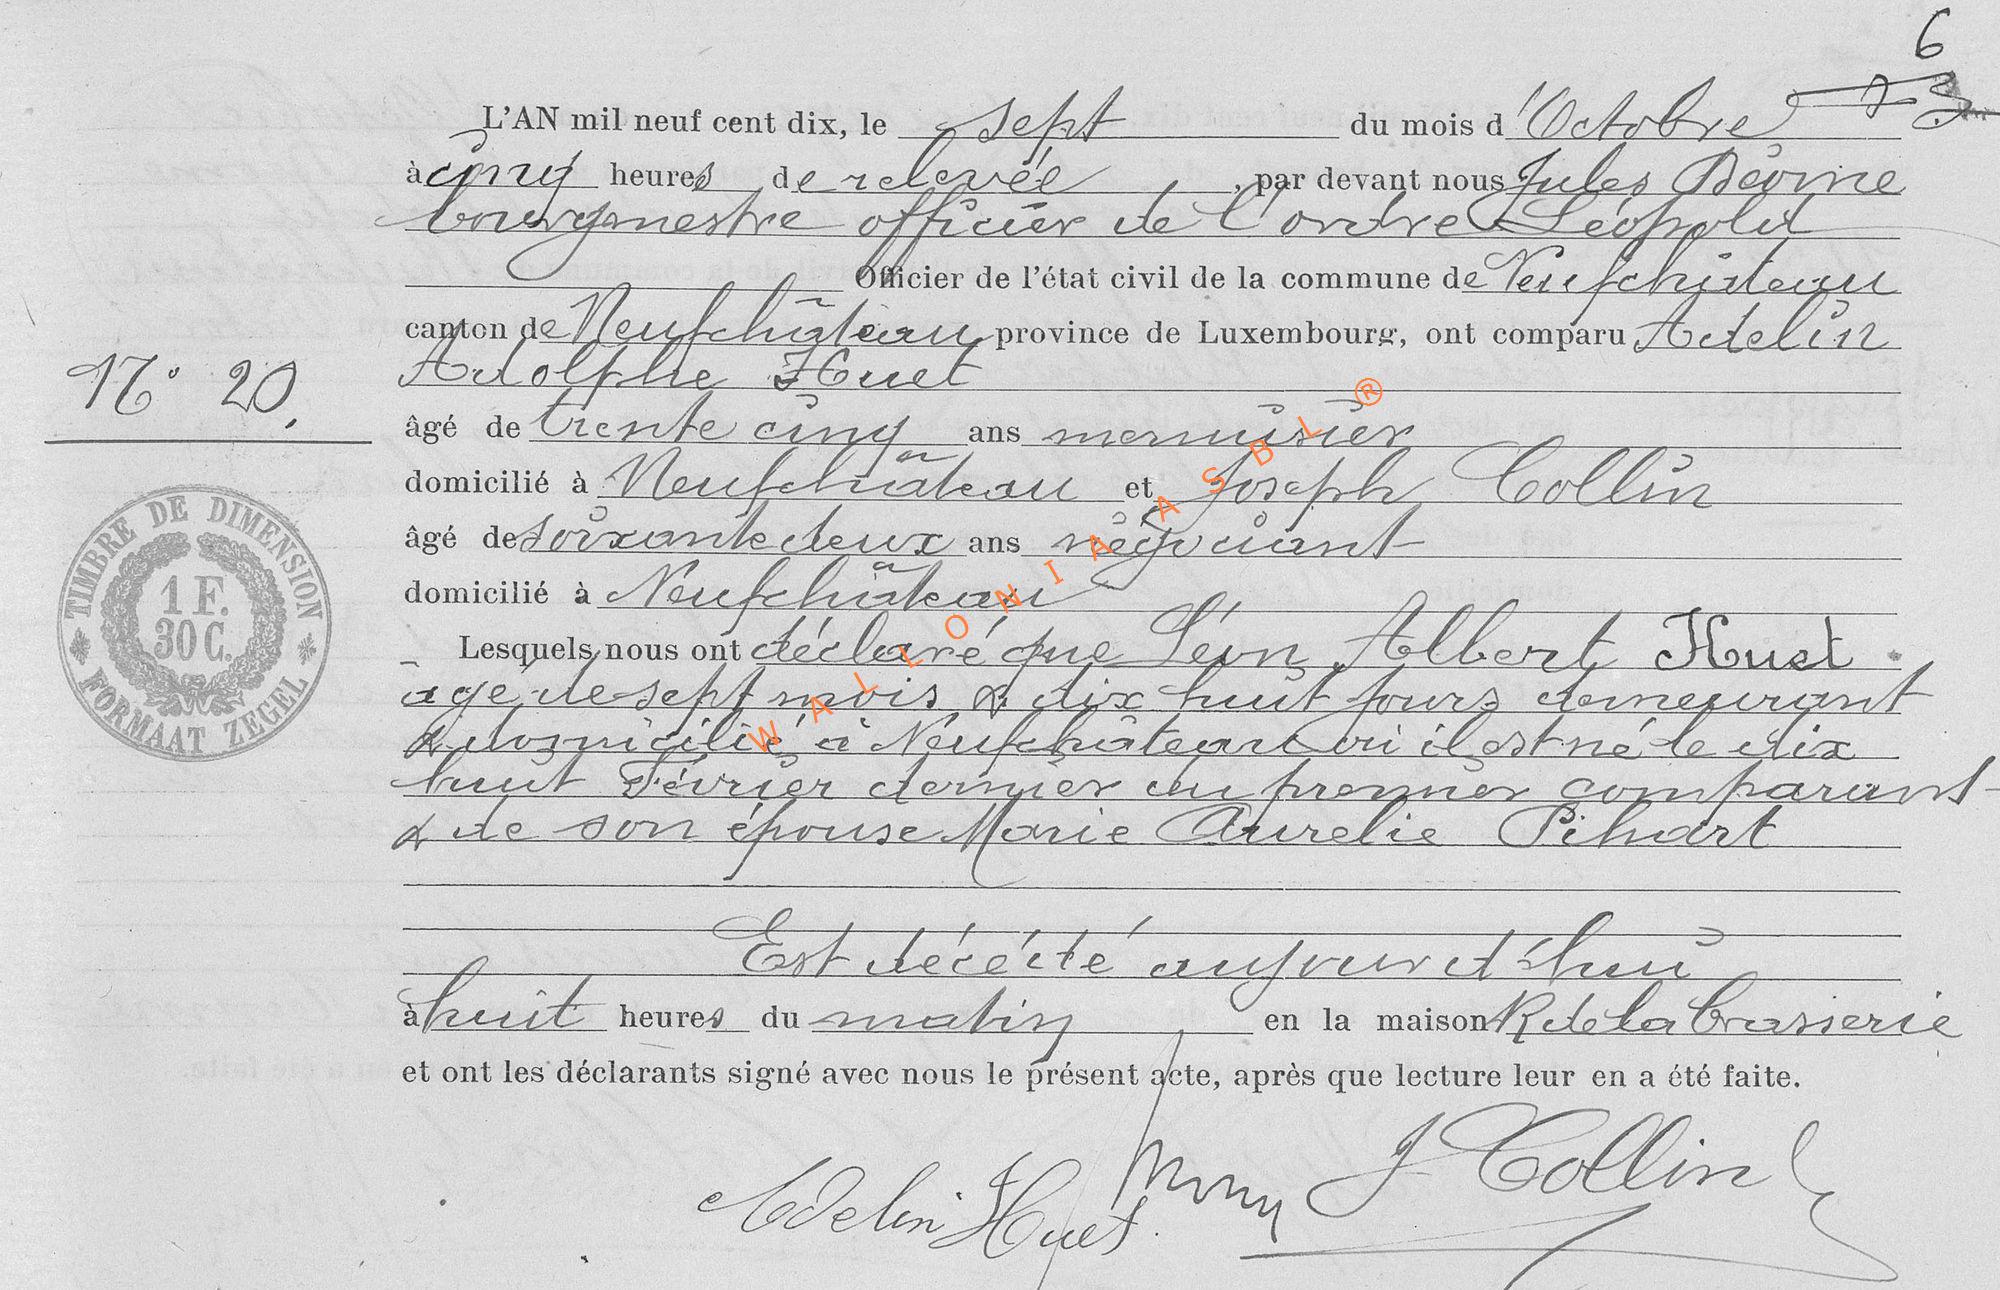 6
L'AN mil neuf cent dix, le sept du mois d'Octobre
à cinq heures de relevée, par devant nous Jules
bourgmestre officier de l'ordre Léopold
Officier de l'état civil de la commune de Neufchâteau
canton de Neufchâteau province de Luxembourg, ont comparu Adelin
Adolphe Huet
N° 20.
âgé de trente cinq ans menuisier
domicilié à Neufchâteau et Joseph Collin
âgé de soixante deux ans négociant
domicilié à Neufchâteau
Lesquels nous ont déclaré que Léon Albert Huet
âgé de sept mois & dix huit jours demeurant
& domicilié à Neufchâteau où il est né le dix
huit Février dernier du premier comparant
& de son épouse Marie Aurelie Pihart
Est décédé aujourd'hui
à huit heures du matin en la maison R de la brasserie
et ont les déclarants signé avec nous le présent acte, après que lecture leur en a été faite.
J Collin
Adelin Huet
TIMBRE DE DIMENSION
1 F.
30 C.
FORMAAT ZEGEL
WALLONIA ASBL ®